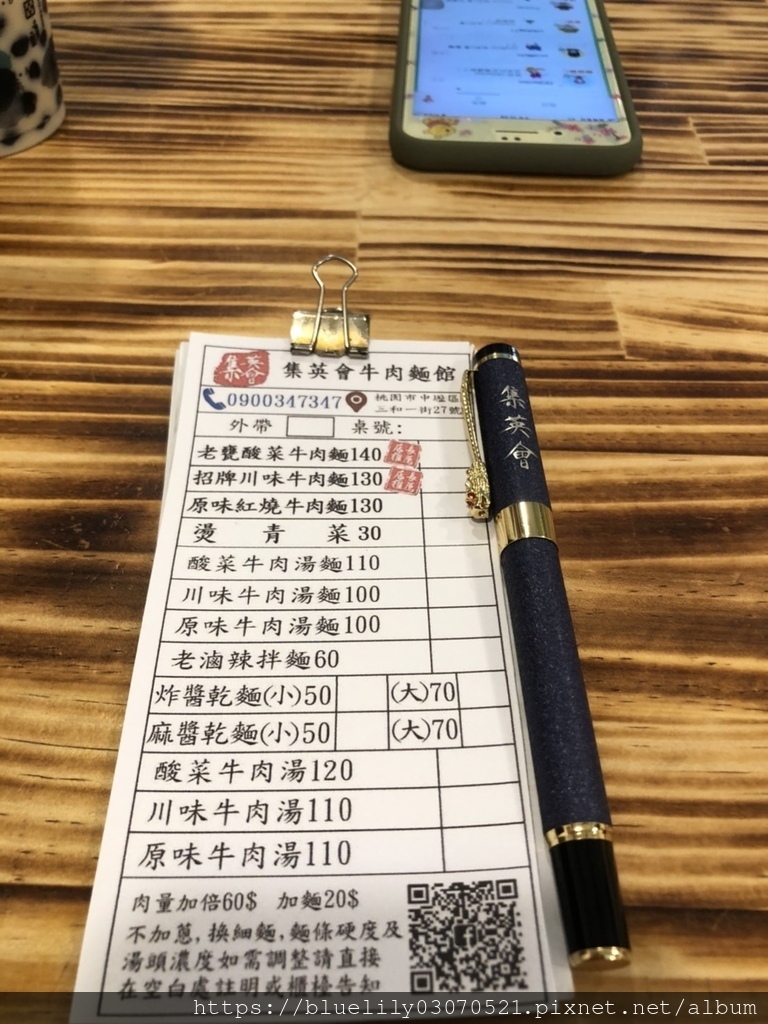 集英會
集英會牛肉麵館
0900347347
桃園市中壢區
三和一街27號
外帶 桌號:
老甕酸菜牛肉麵140 店長推薦
招牌川味牛肉麵130 店長推薦
原味紅燒牛肉麵130
燙青菜30
酸菜牛肉湯麵110
川味牛肉湯麵100
原味牛肉湯麵100
老滷辣拌麵60
炸醬乾麵(小)50 (大)70
麻醬乾麵(小)50 (大)70
酸菜牛肉湯120
川味牛肉湯110
原味牛肉湯110
肉量加倍60$ 加麵20$
不加蔥,換細麵,麵條硬度及
湯頭濃度如需調整請直接
在空白處註明或櫃檯告知
集英會
https://bluelily03070521.pixnet.net/album